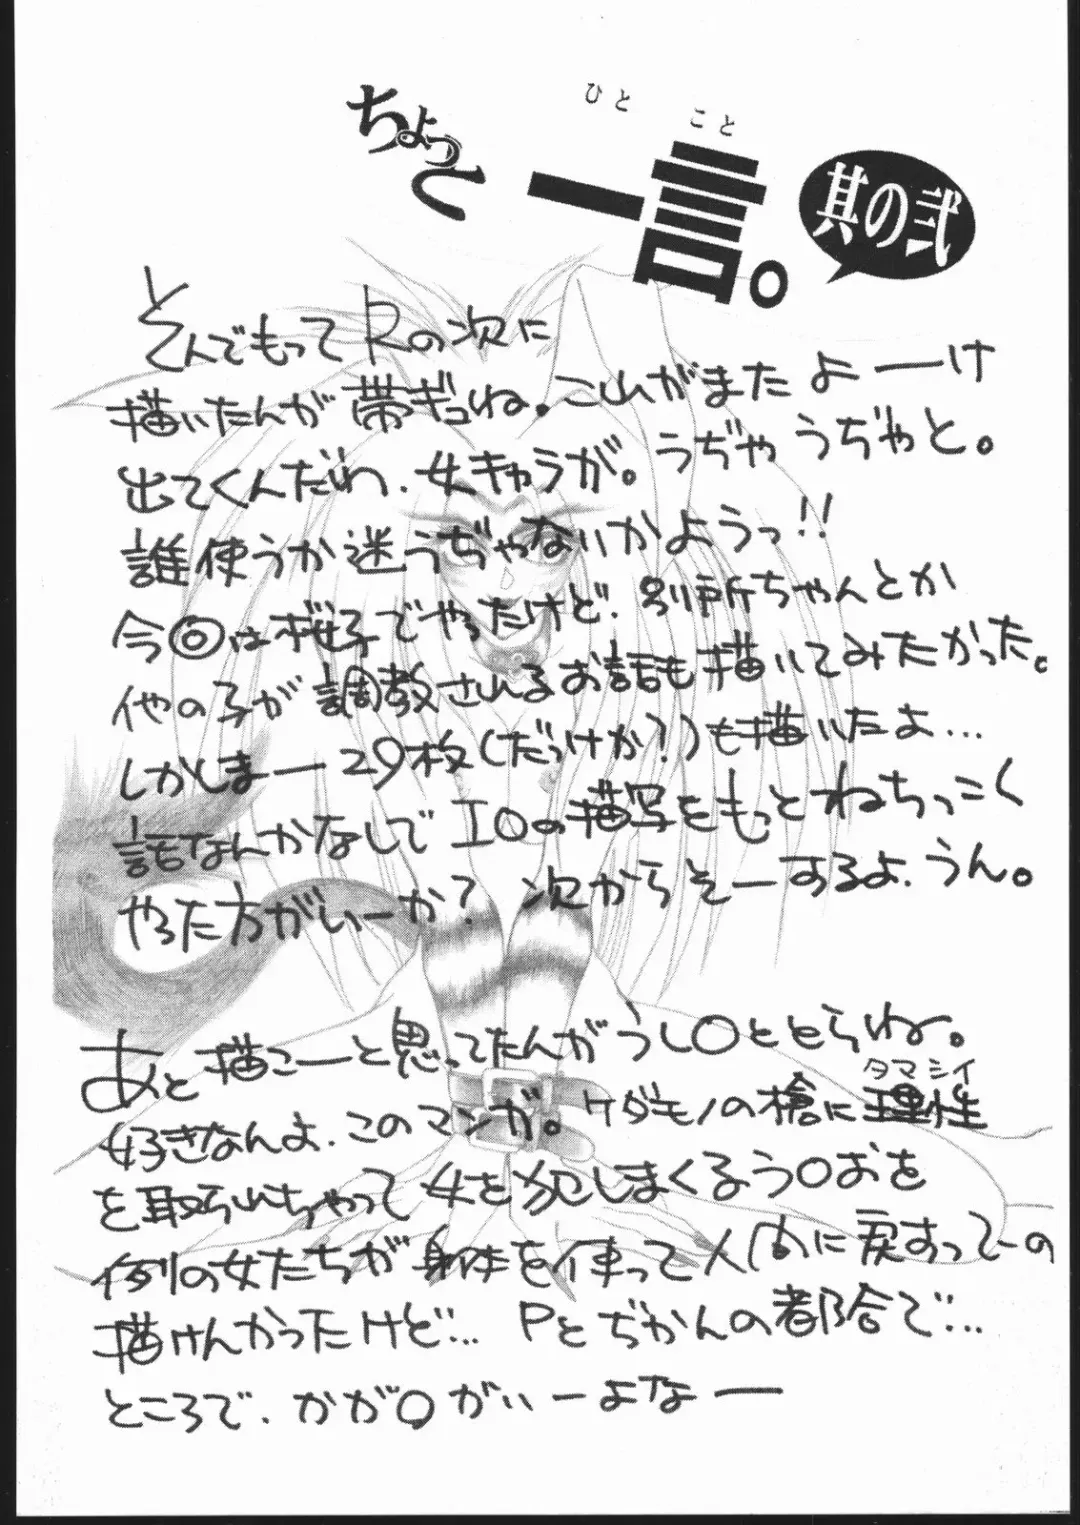 ちょっと
ひと こと
一言。
其の弐
とんでもって Rの次に
描いたんが 帯ギュね。これがまた よーーけ
出てくんだわ、女キャラが。うぢゃ うぢゃと。
誰使うか迷うぢゃないかようっ!!
今◎は桜子でやったけど、別所ちゃんとか
他の子が調教されるお話も描いてみたかった。
しかしまー29枚(だっけか?)も描いたよ...
話なんかなしでエ〇の描写をもっとねちっこく
やった方がいーか? 次からそーするよ、うん。
あと描こーーと思ってたんがうし〇ととらね。
タマシイ
好きなんよ、このマンガ。ケダモノの槍に理性
を取られちゃって女を犯しまくるう〇おを
例の女たちが身体を使って人間に戻すってーの
描けんかったけど... Pとぢかんの都合で...
ところで、かが〇がいーよなー